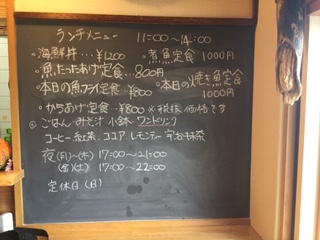 ランチメニュー 11:00〜14:00
・海鮮丼…¥1200 ・煮魚定食…1000円
・魚たったあげ定食…800円
・本日の魚フライ定食 ¥800 ・本日の焼き魚定食 1000円
・からあげ定食…¥800 ※税抜価格です
ごはん みそ汁 小鉢 ワンドリンク
コーヒー 紅茶 ココア レモンティー 宇治抹茶
夜(月)〜(木) 17:00〜21:00
(金)(土) 17:00〜22:00
定休日(日)